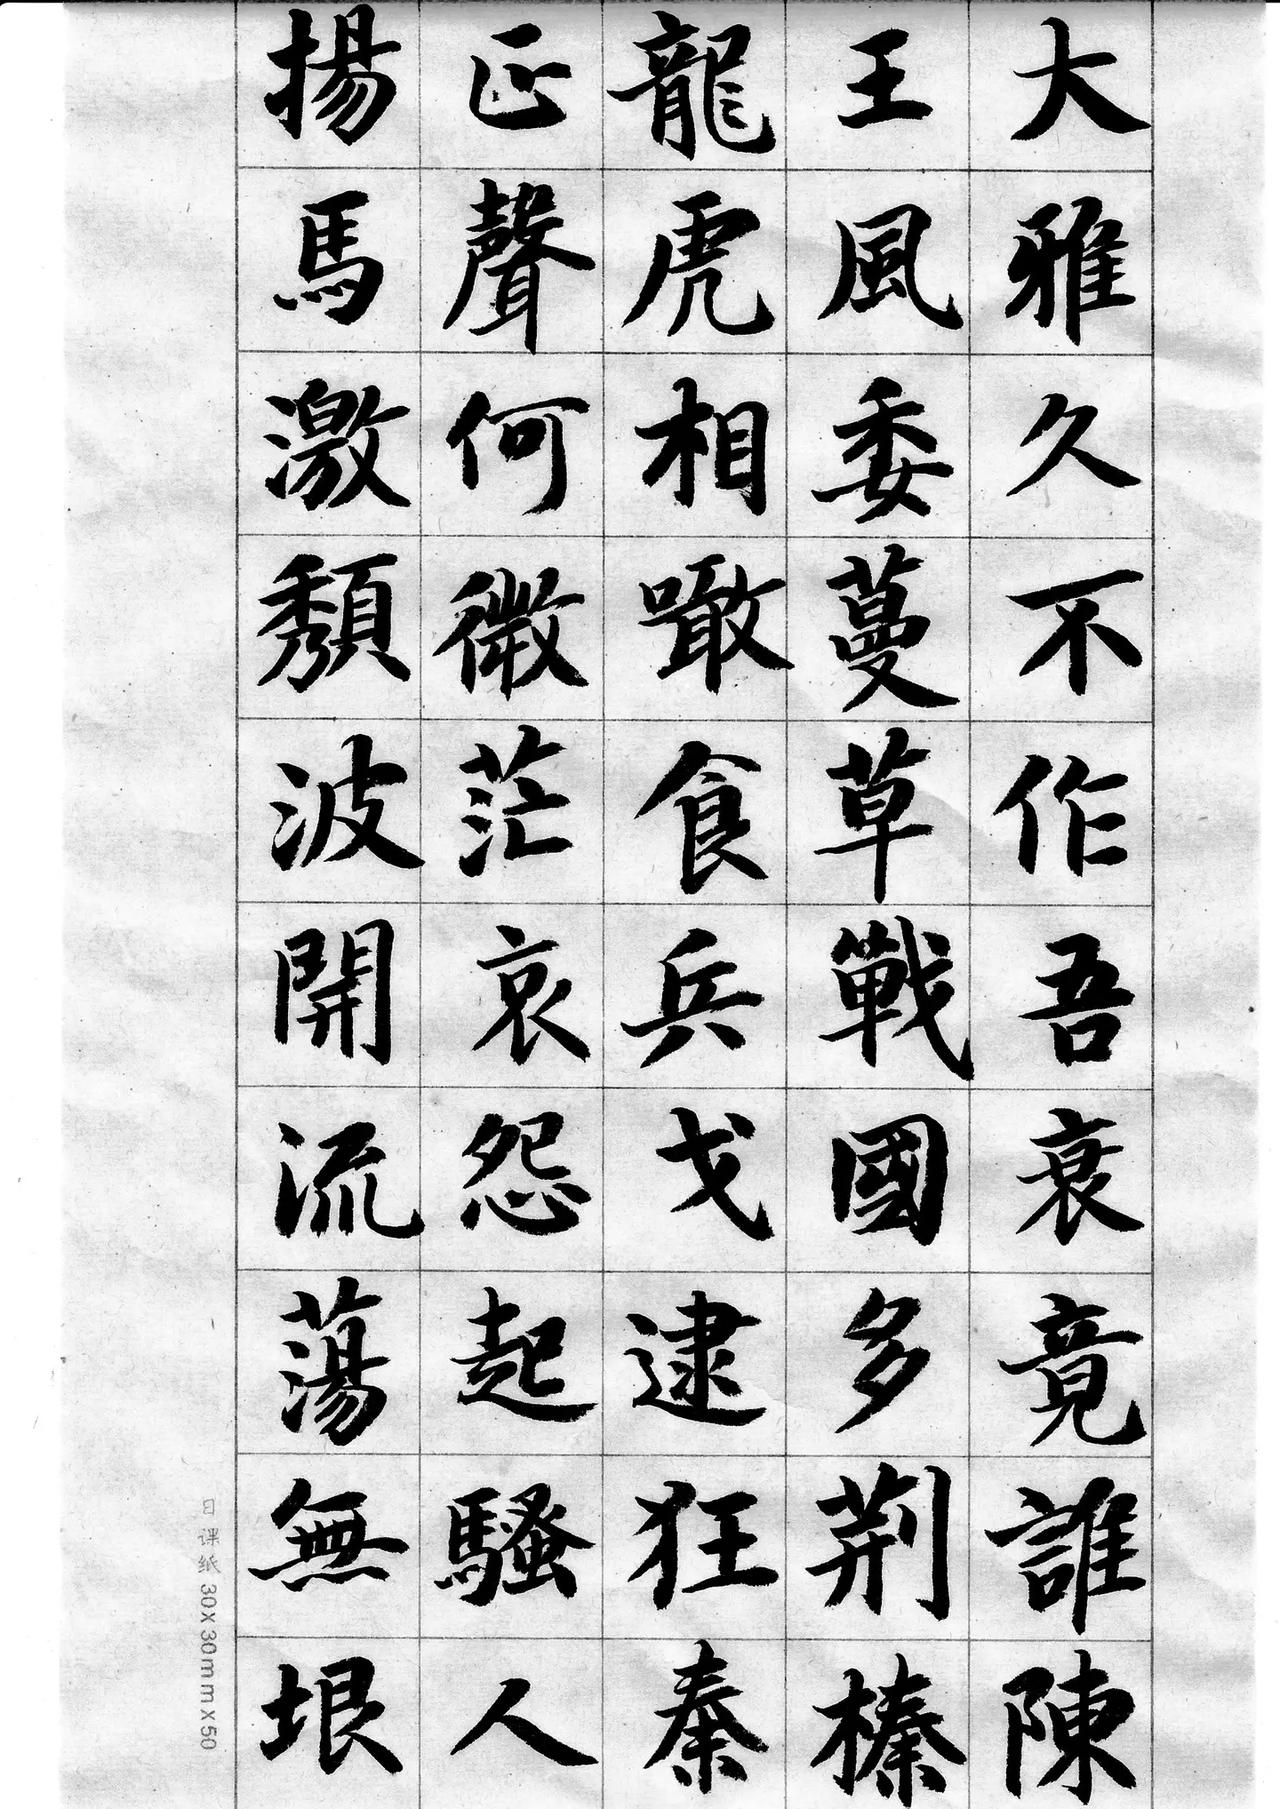 大雅久不作吾衰竟誰陳
王風委蔓草戰國多荆榛
龍虎相噉食兵戈逮狂秦
正聲何微茫哀怨起騷人
揚馬激頹波開流蕩無垠
日课纸 30x30mmx50